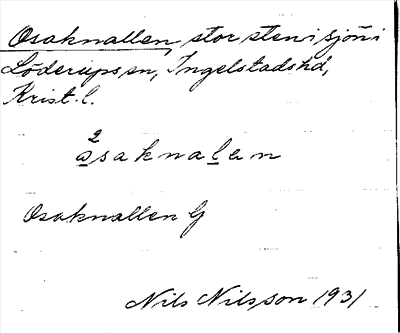 Osaknallen, stor sten i sjön i
Löderups sn, Ingelstads hd,
Krist. l.
2
åsaknalen
Osaknallen G
Nils Nilsson 1931